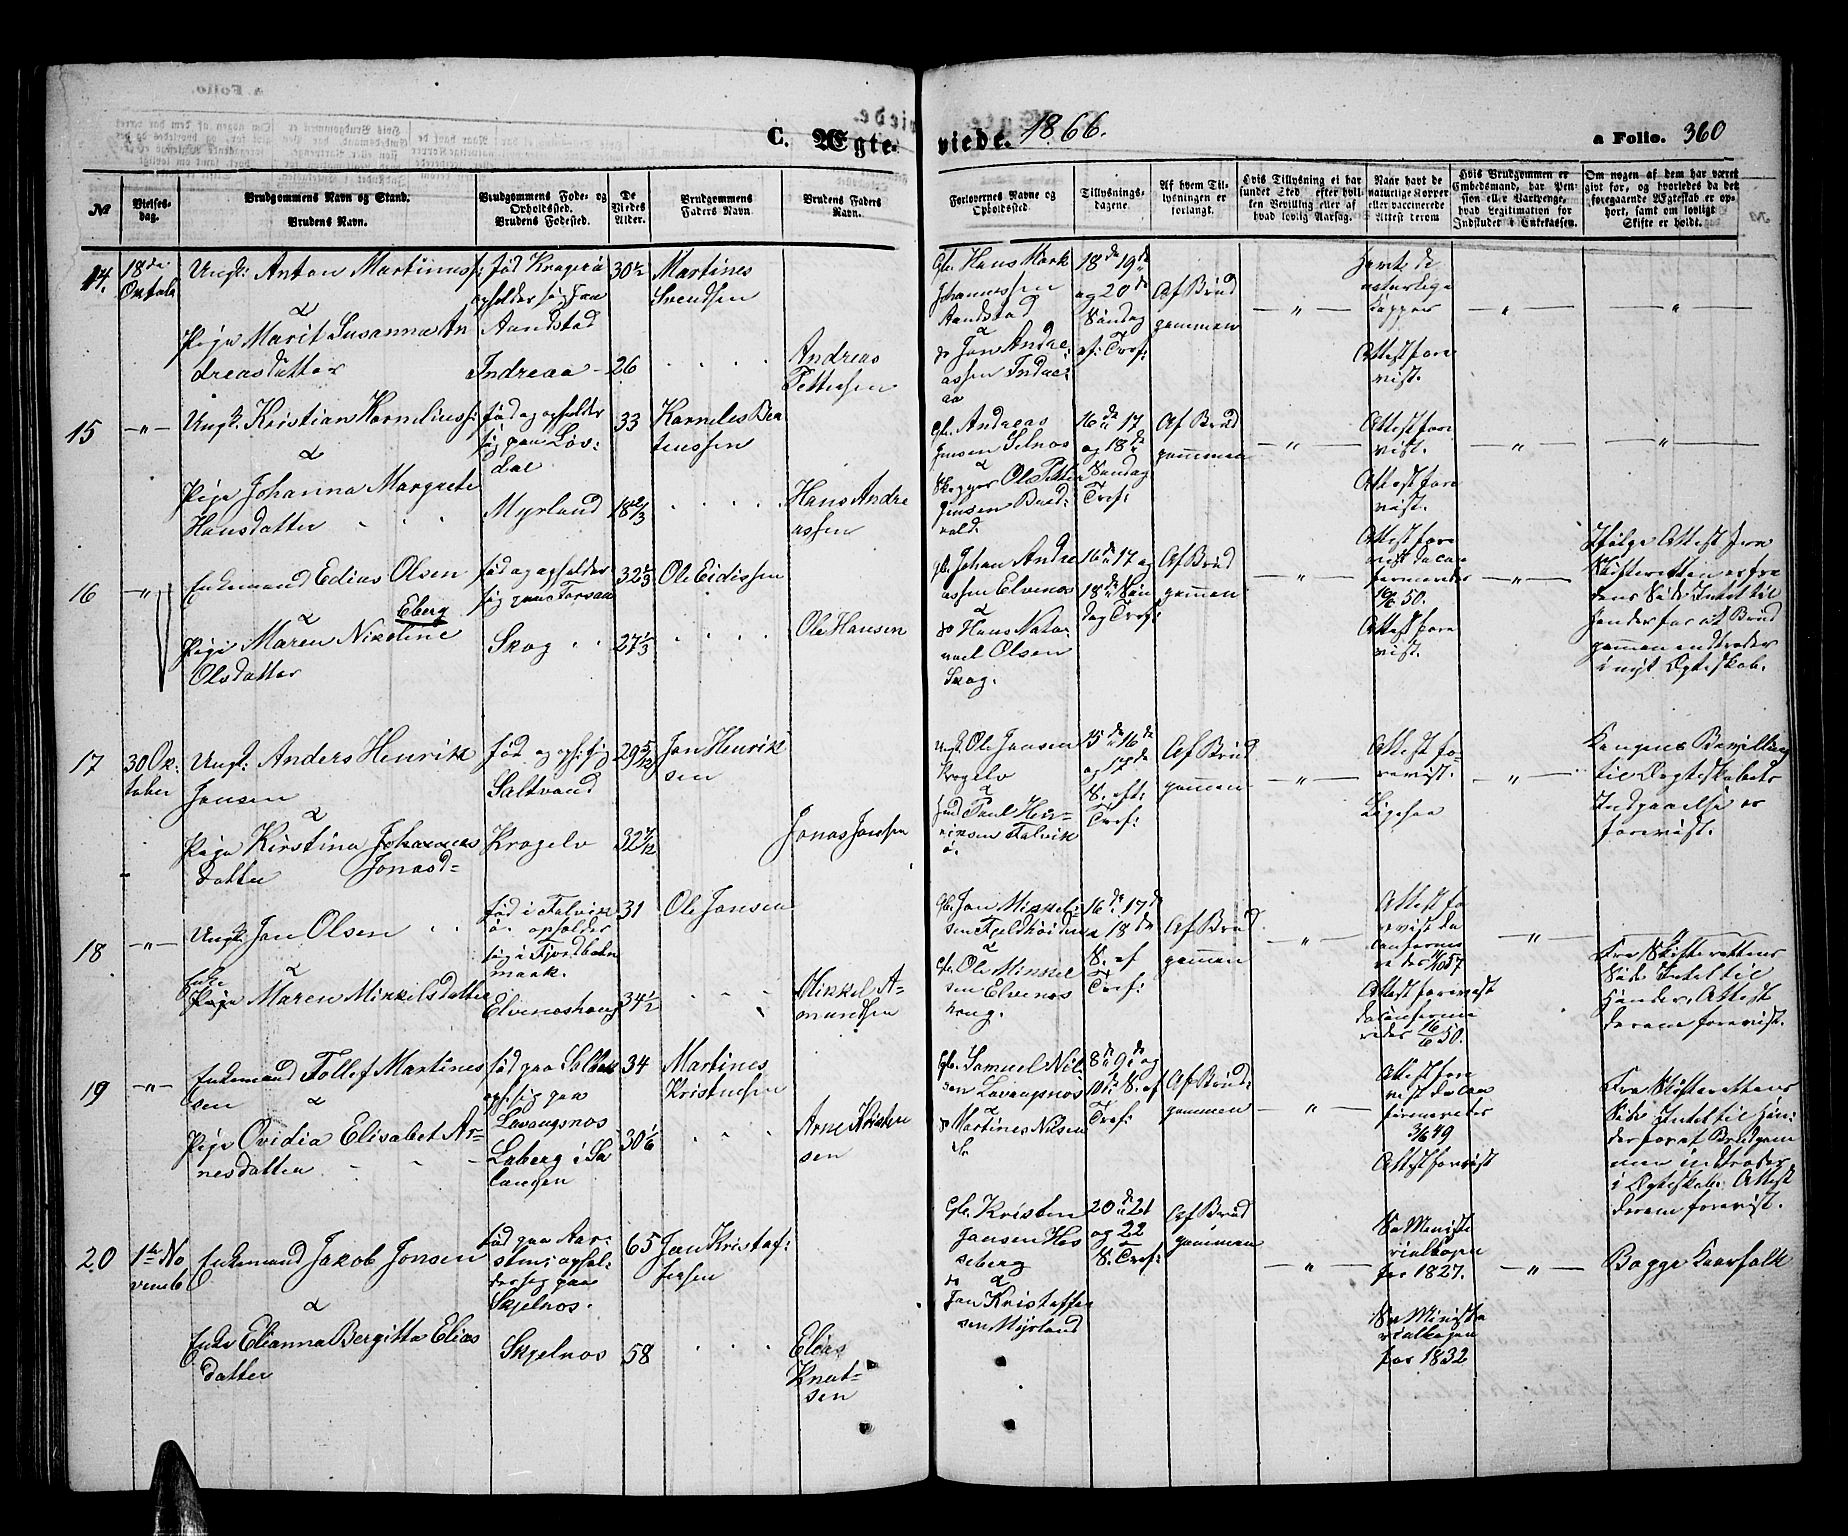 C. Ægte-
viede. 1866.
a Folio. 360
№
Vielses-
dag.
Brudgommens Navn og Stand.
Brudens Navn.
Brudgommens Føde- og
Opholdssted.
Brudens Fødested.
De
Viedes
Alder.
Brudgommens
Faders Navn.
Brudens Faders
Navn.
Forlovernes Navne og
Opholdssted.
Tillysnings-
dagene.
Af hvem Til-
lysningen er
forlangt.
Hvis Tillysning ei har
fundet Sted, efter hvil-
ken Bevilling eller af
hvad lovlig Aarsag.
Naar havt de
naturlige Kopper
eller vaccinerede
Attest derom
Hvis Brudgommen er
Embedsmand, har Pen-
sion eller Vartpenge,
hvad Legitimation for
Indskudet i Enkekassen.
Om nogen af dem har været
gift før, og hvorledes da det
foregaaende Ægteskab er op-
hørt, samt om lovligt
Skifte er holdt.
14.
18de
Octob
Ungk: Anton Martinuss:
&
Pige Marit Susanna An
dreasdatter
født Kragerø
opholder sig paa
Aandstad
Indreaa
30½
26
Martines
Svendsen
Andreas
Pettersen
Gb. Hans Mark
Johannessen
Aandstad
&
do Jon Andre-
assen Indre-
aa
18de 19de
og 20de
Søndag
ef: Tref:
Af Brud
gommen
"
havt de
naturlige
Kopper
Attest fore
vist.
"
"
15
"
Ungk: Kristian Kornelius:
&
Pige Johanna Margrete
Hansdatter
født og opholder
sig paa Løv-
dal
Myrland
33
18 2/3
Kornelis Ber
tenssen
Hans Andre
assen
Gb. Andreas
Jensen Selnos
&
Skipper Ole Petter
Jensen
16de 17
og 18de
Søndag
Tref:
Af Brud
gommen
"
Attest fore
vist.
Attest fore
vist.
"
"
16
"
Enkemand Edias Olsen
Eberg
&
Pige Maren Nikoline
Olsdatter
født og opholder
sig paa Forsaa
Skog
32 1/3
27 1/3
Ole Eidissen
Ole Hansen
Gb. Johan Andre
assen Elvenos
&
do Hans Nata-
nael Olsen
Skog.
16de 17 og
18de Søn
dag Tref:
Af Brud
gommen
"
Attest fore
vist da con
formeredes
50.
Attest fore
vist.
"
Ifølge Attest fra
Skifteretten er fra
dens Side Intet til
Hinder for at Brud
gommen indtræder
i nyt Ægteskab.
17
30 Ok-
tober
Ungk: Anders Henrik
Jansen
&
Pige Kirstina Johannes
datter Jonasd=
født og oph: sig
Saltvand
Kragelv
29 5/12
32 7/12
Jan Henrik
sen
Jonas Jonsen
Ungk. Ole Jansen
Kragelv
&
Ind Paul Hen-
riksen Talvik
ø.
15de 16de
og 17de
S. eft:
Tref:
Af Brud
gommen
"
Attest fo-
revist.
Ligesaa
"
Kongens Bevilling
til Ægteskabets
Indgaaelse er
forevist.
18
"
Ungk: Jon Olsen
&
Enke
Pige Maren Mikkelsdatter
født i Talvik
ø. opholder
sig i Fjordbotn
mark.
Elvenoshaug
31
34½
Ole Jonsen
Mikkel A-
mundsen
Gb. Jon Mikkel-
sen Fjeldheiden
&
Gb. Ole Mikkel
sen Elvenos
haug.
16de 17de
& 18de
S. ef
Tref:
Af Brud
gommen
"
Attest fo
revist da
conforme
redes 57
Attest forevist
da conforme
redes 50.
"
Fra Skifterettens
Side Intet til
Hinder, Attest
derom forevist.
19
"
Enkemand Tollef Martines
sen &
Pige Ovidia Elisabet Ar-
nesdatter
født paa
op: sig paa
Lavangsnos
Laberg i Sa
langen
34
30 1/6
Martines
Kristensen
Arne Kristen
sen
Gb. Samuel Nil
sen Lavangsnos
&
do Martines Nilsen
8de 9de og
10de S. ef
Tref:
Af Brud-
gommen
"
Attest fore
vist da con
formeredes
3/6 49
Attest forevist
"
Fra Skifterettens
Side Intet til Hin-
der for at Brudgom
men indtræder
i Ægteskab. Attest
derom forevist.
20
1ste No
vemb
Enkemand Jakob Jonsen
&
Enke Elianna Bergitta Elias
datter
født paa Aar-
stein; ophol-
der sig paa
Skjelnos.
Skjelnos
65
58
Jon Kristof-
fersen
Elias
Knut-
sen
Gb. Kristen
Jansen Hes
seberg
do &
Jon Kristoffer
sen Myrland
20de 21
og 22
S. Tref:
Af Brud
gommen
"
Se Ministe
rialbogen
for 1827.
Se Ministe
rialbogen
for 1832
"
Begge Enkefolk